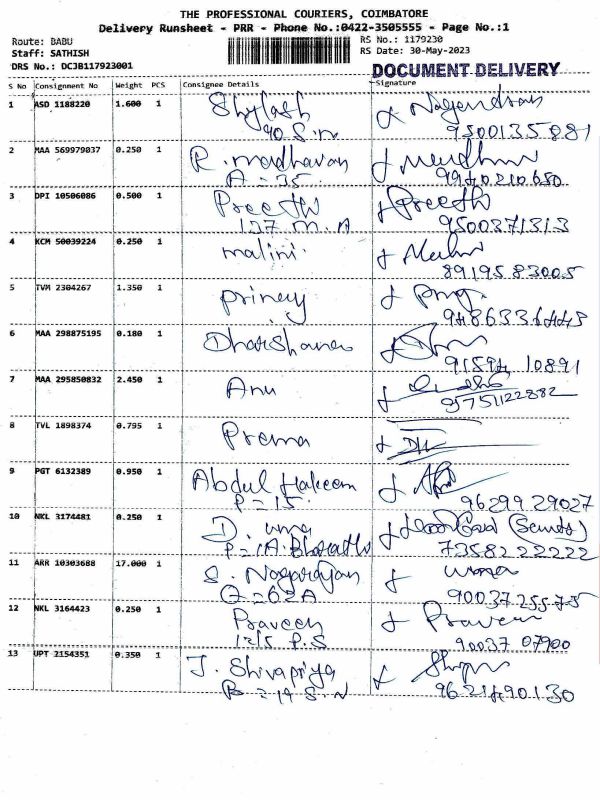 THE PROFESSIONAL COURIERS, COIMBATORE
Delivery Runsheet - PRR - Phone No.:0422-3505555 - Page No.:1
Route: BABU
Staff: SATHISH
DRS No.: DCJB117923001
RS No.: 1179230
RS Date: 30-May-2023
DOCUMENT DELIVERY
S No Consignment No Weight PCS Consignee Details Signature
1 ASD 1188220 1.600 1 Shylash Nagendran
90 S.n 9500135881
2 MAA 569979037 0.250 1 R. madhavan
A = 35 9940210650
3 DPI 10506086 0.500 1 Preethi Preethi
127 M.A 9500371313
4 KCM 50039224 0.250 1 malini
8919583005
5 TVM 2304267 1.350 1
9486336443
6 MAA 298875195 0.180 1
91594 10891
7 MAA 295850832 2.450 1 Anu
9751122882
8 TVL 1898374 0.795 1 Prema
9 PGT 6132389 0.950 1 Abdul Hakeem
P = 15 96299 29027
10 NKL 3174481 0.250 1 D. uma
7358222222
11 ARR 10303688 17.000 1 S. Nagarajan
G = 62A 90037 25575
12 NKL 3164423 0.250 1 Praveen Praveen
12/5 P.S 90037 07900
13 UPT 2154351 0.350 1 J. Shivapriya
B = 19 S.N 9621490130